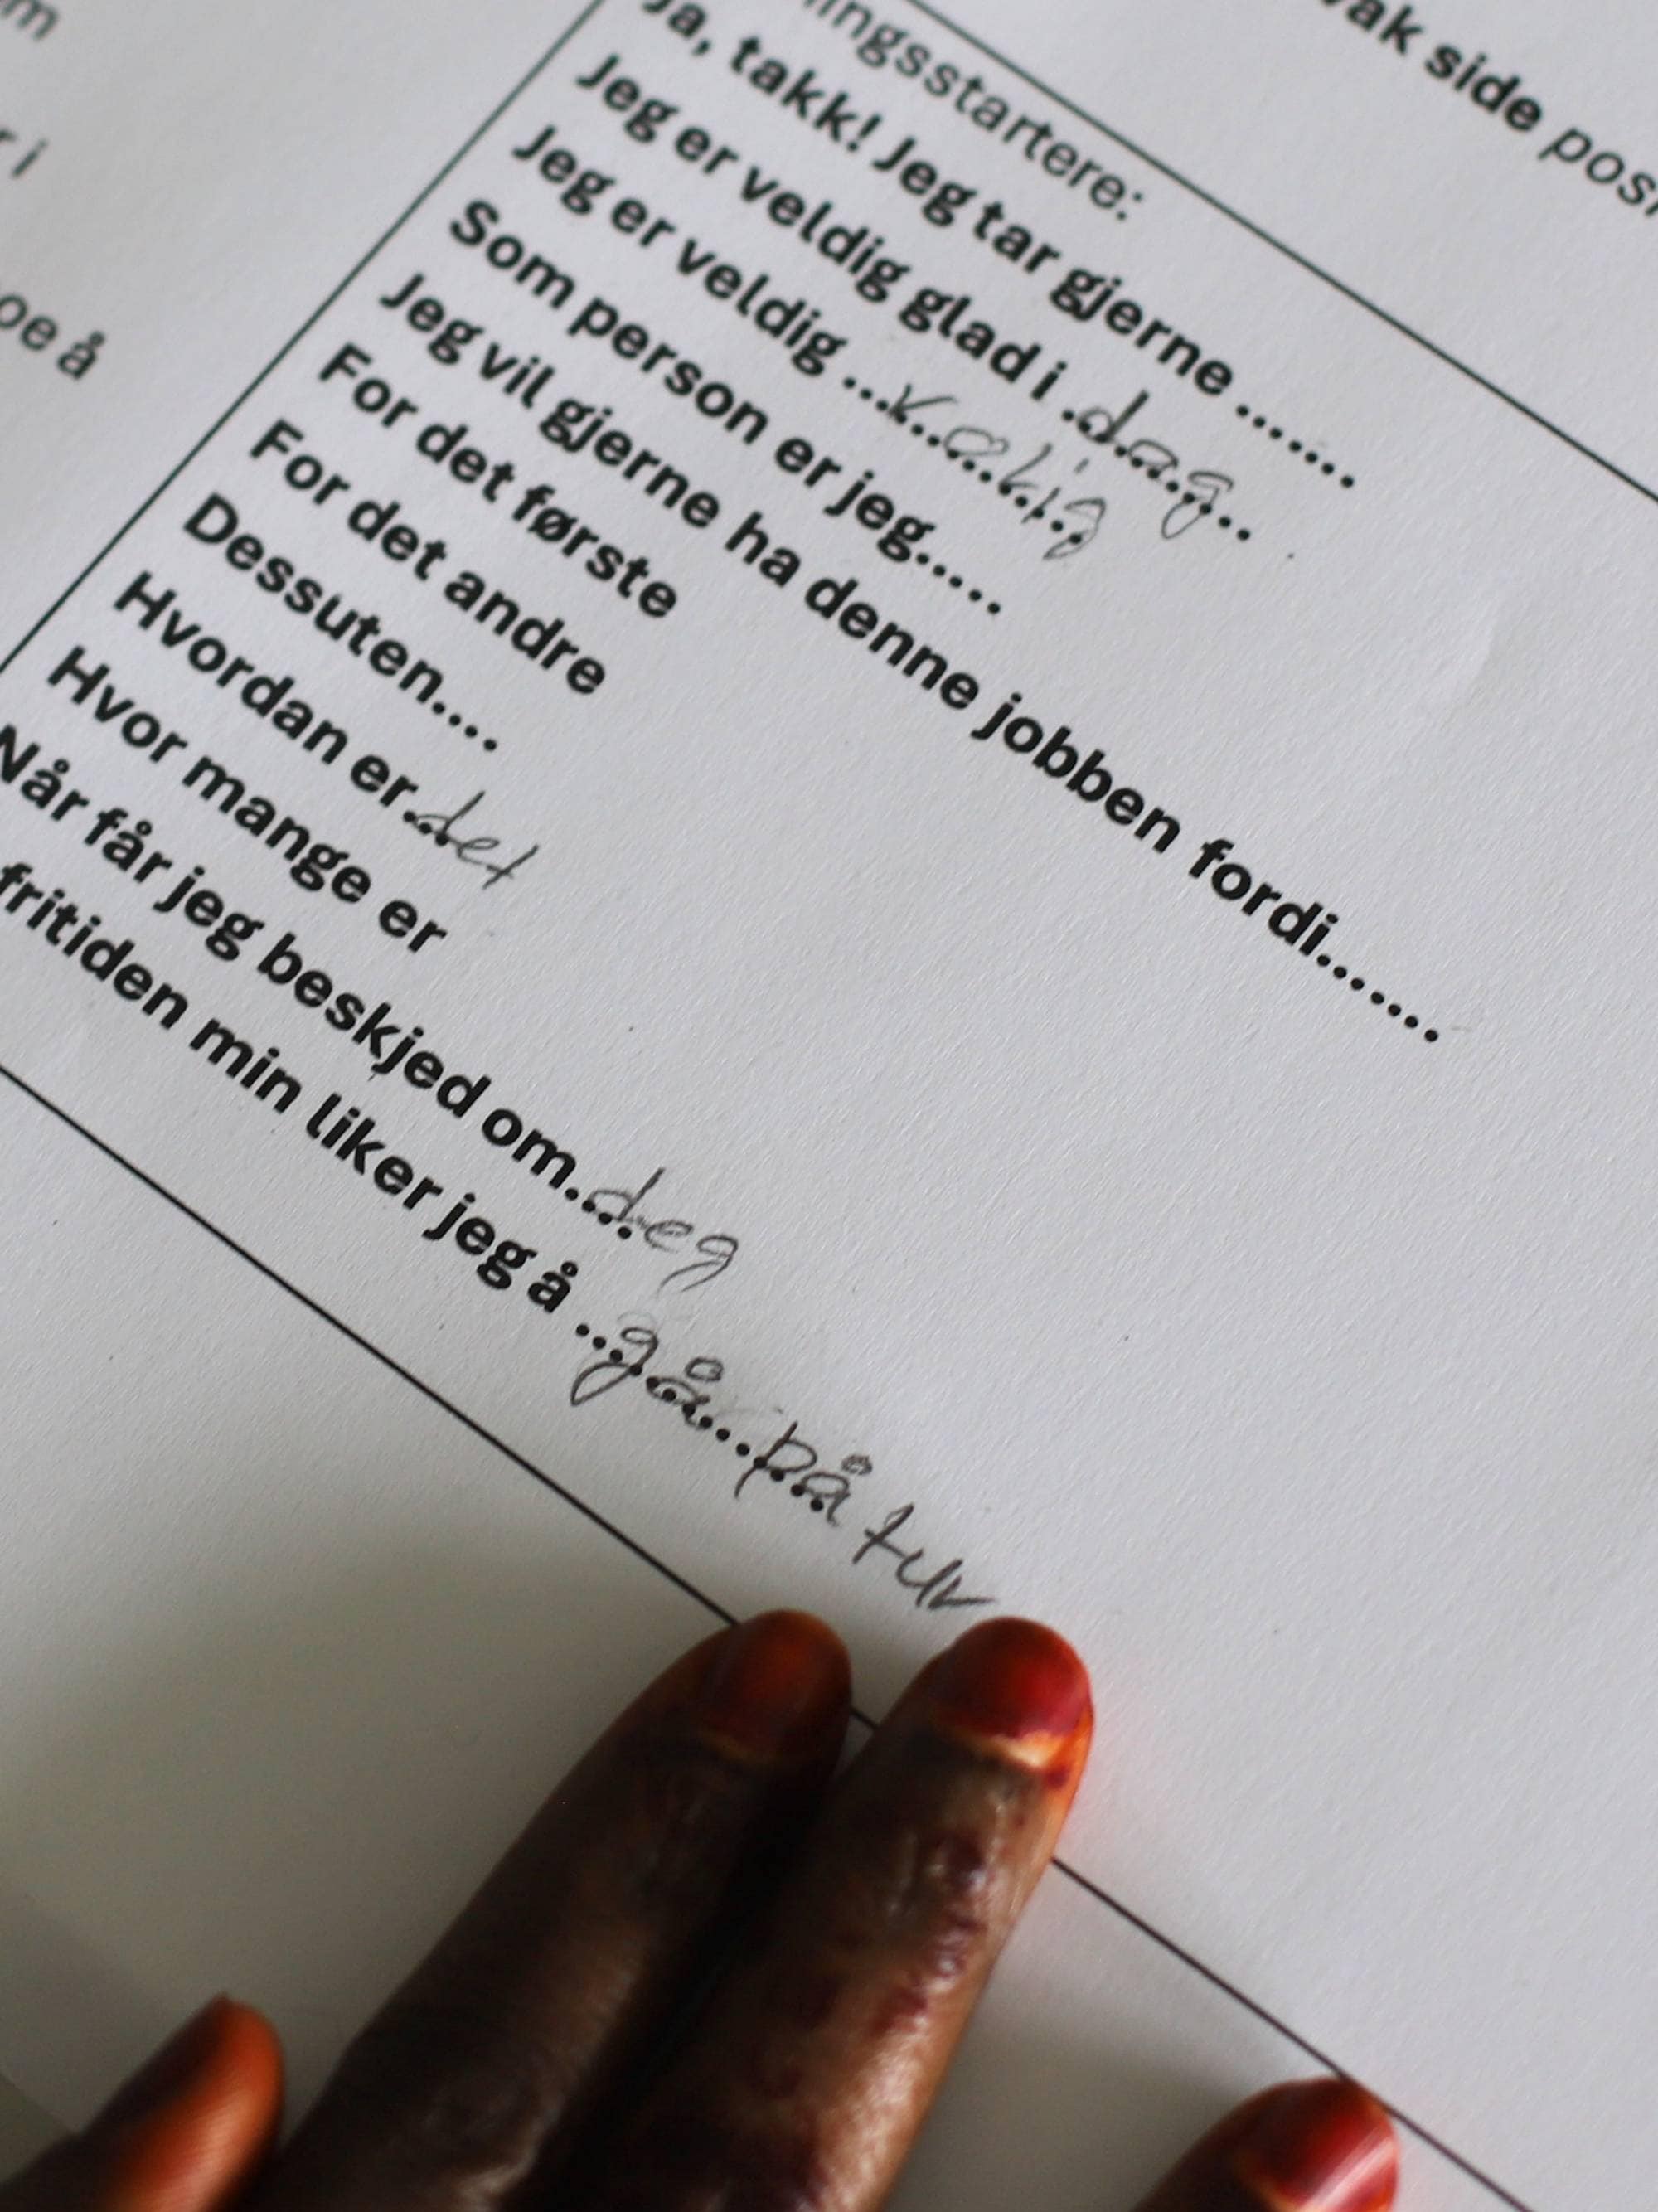 vak side pos
m
r i
oe å
ingsstartere:
Ja, takk! Jeg tar gjerne .......
Jeg er veldig glad i .dag..
Jeg er veldig ...
Som person er jeg.....
Jeg vil gjerne ha denne jobben fordi.......
For det første
For det andre
Dessuten....
Hvordan er..det
Hvor mange er
Når får jeg beskjed om....deg
fritiden min liker jeg å ...gå...på tur